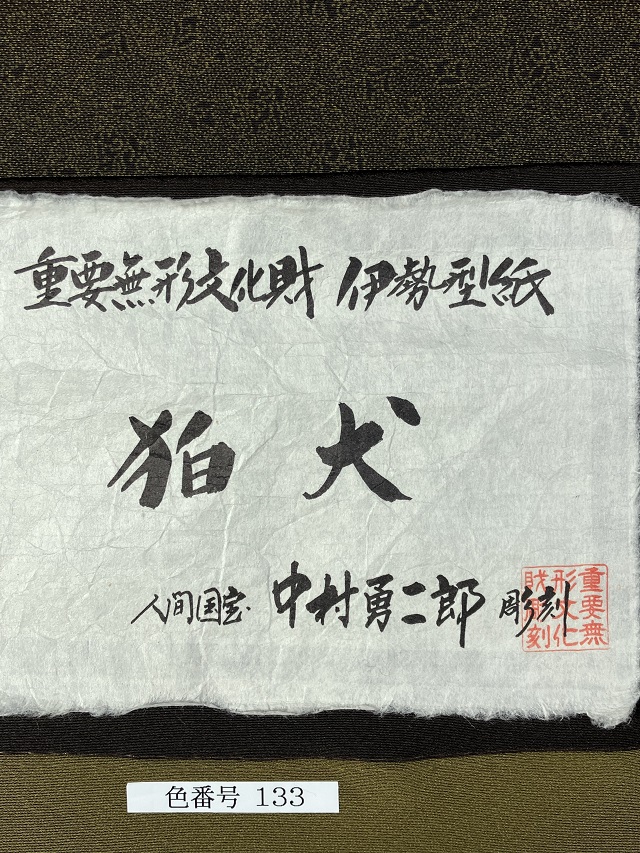 重要無形文化財 伊勢型紙
狛犬
人間国宝 中村勇二郎 彫刻
重要無
形文化
財彫刻
色番号 133